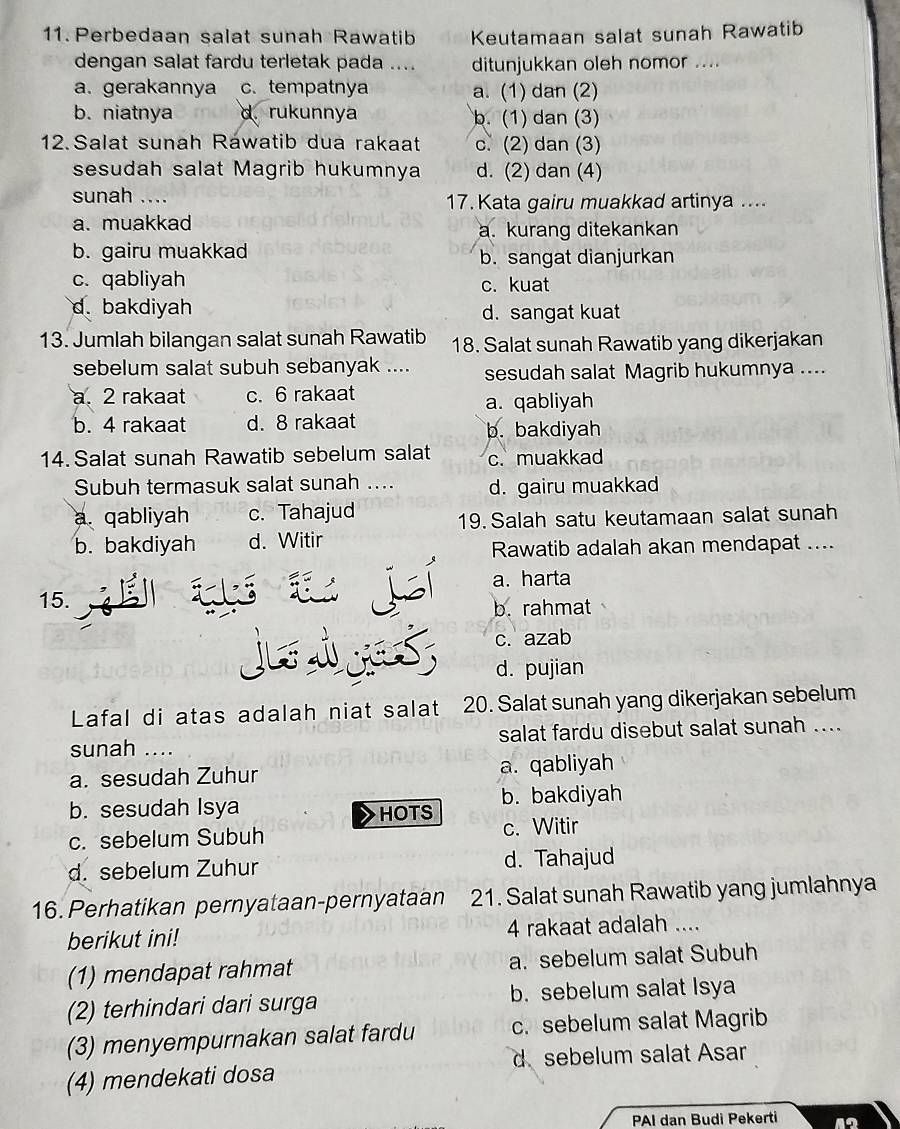 11. Perbedaan salat sunah Rawatib
dengan salat fardu terletak pada ....
a. gerakannya c. tempatnya
b. niatnya d. rukunnya
12. Salat sunah Rawatib dua rakaat
sesudah salat Magrib hukumnya
sunah ....
a. muakkad
b. gairu muakkad
c. qabliyah
d. bakdiyah
13. Jumlah bilangan salat sunah Rawatib
sebelum salat subuh sebanyak ....
a. 2 rakaat c. 6 rakaat
b. 4 rakaat d. 8 rakaat
14. Salat sunah Rawatib sebelum salat
Subuh termasuk salat sunah ....
a. qabliyah c. Tahajud
b. bakdiyah d. Witir
15. اُصَلِّ سُنَّةً قَبْلِيَّةً الظُّهْرِ
رَكْعَتَيْنِ لِلّٰهِ تَعَالَى
Lafal di atas adalah niat salat
sunah ....
a. sesudah Zuhur
b. sesudah Isya
c. sebelum Subuh
d. sebelum Zuhur
HOTS
16. Perhatikan pernyataan-pernyataan
berikut ini!
(1) mendapat rahmat
(2) terhindari dari surga
(3) menyempurnakan salat fardu
(4) mendekati dosa
Keutamaan salat sunah Rawatib
ditunjukkan oleh nomor ....
a. (1) dan (2)
b. (1) dan (3)
c. (2) dan (3)
d. (2) dan (4)
17. Kata gairu muakkad artinya ....
a. kurang ditekankan
b. sangat dianjurkan
c. kuat
d. sangat kuat
18. Salat sunah Rawatib yang dikerjakan
sesudah salat Magrib hukumnya ....
a. qabliyah
b. bakdiyah
c. muakkad
d. gairu muakkad
19. Salah satu keutamaan salat sunah
Rawatib adalah akan mendapat ....
a. harta
b. rahmat
c. azab
d. pujian
20. Salat sunah yang dikerjakan sebelum
salat fardu disebut salat sunah ....
a. qabliyah
b. bakdiyah
c. Witir
d. Tahajud
21. Salat sunah Rawatib yang jumlahnya
4 rakaat adalah ....
a. sebelum salat Subuh
b. sebelum salat Isya
c. sebelum salat Magrib
d. sebelum salat Asar
PAI dan Budi Pekerti